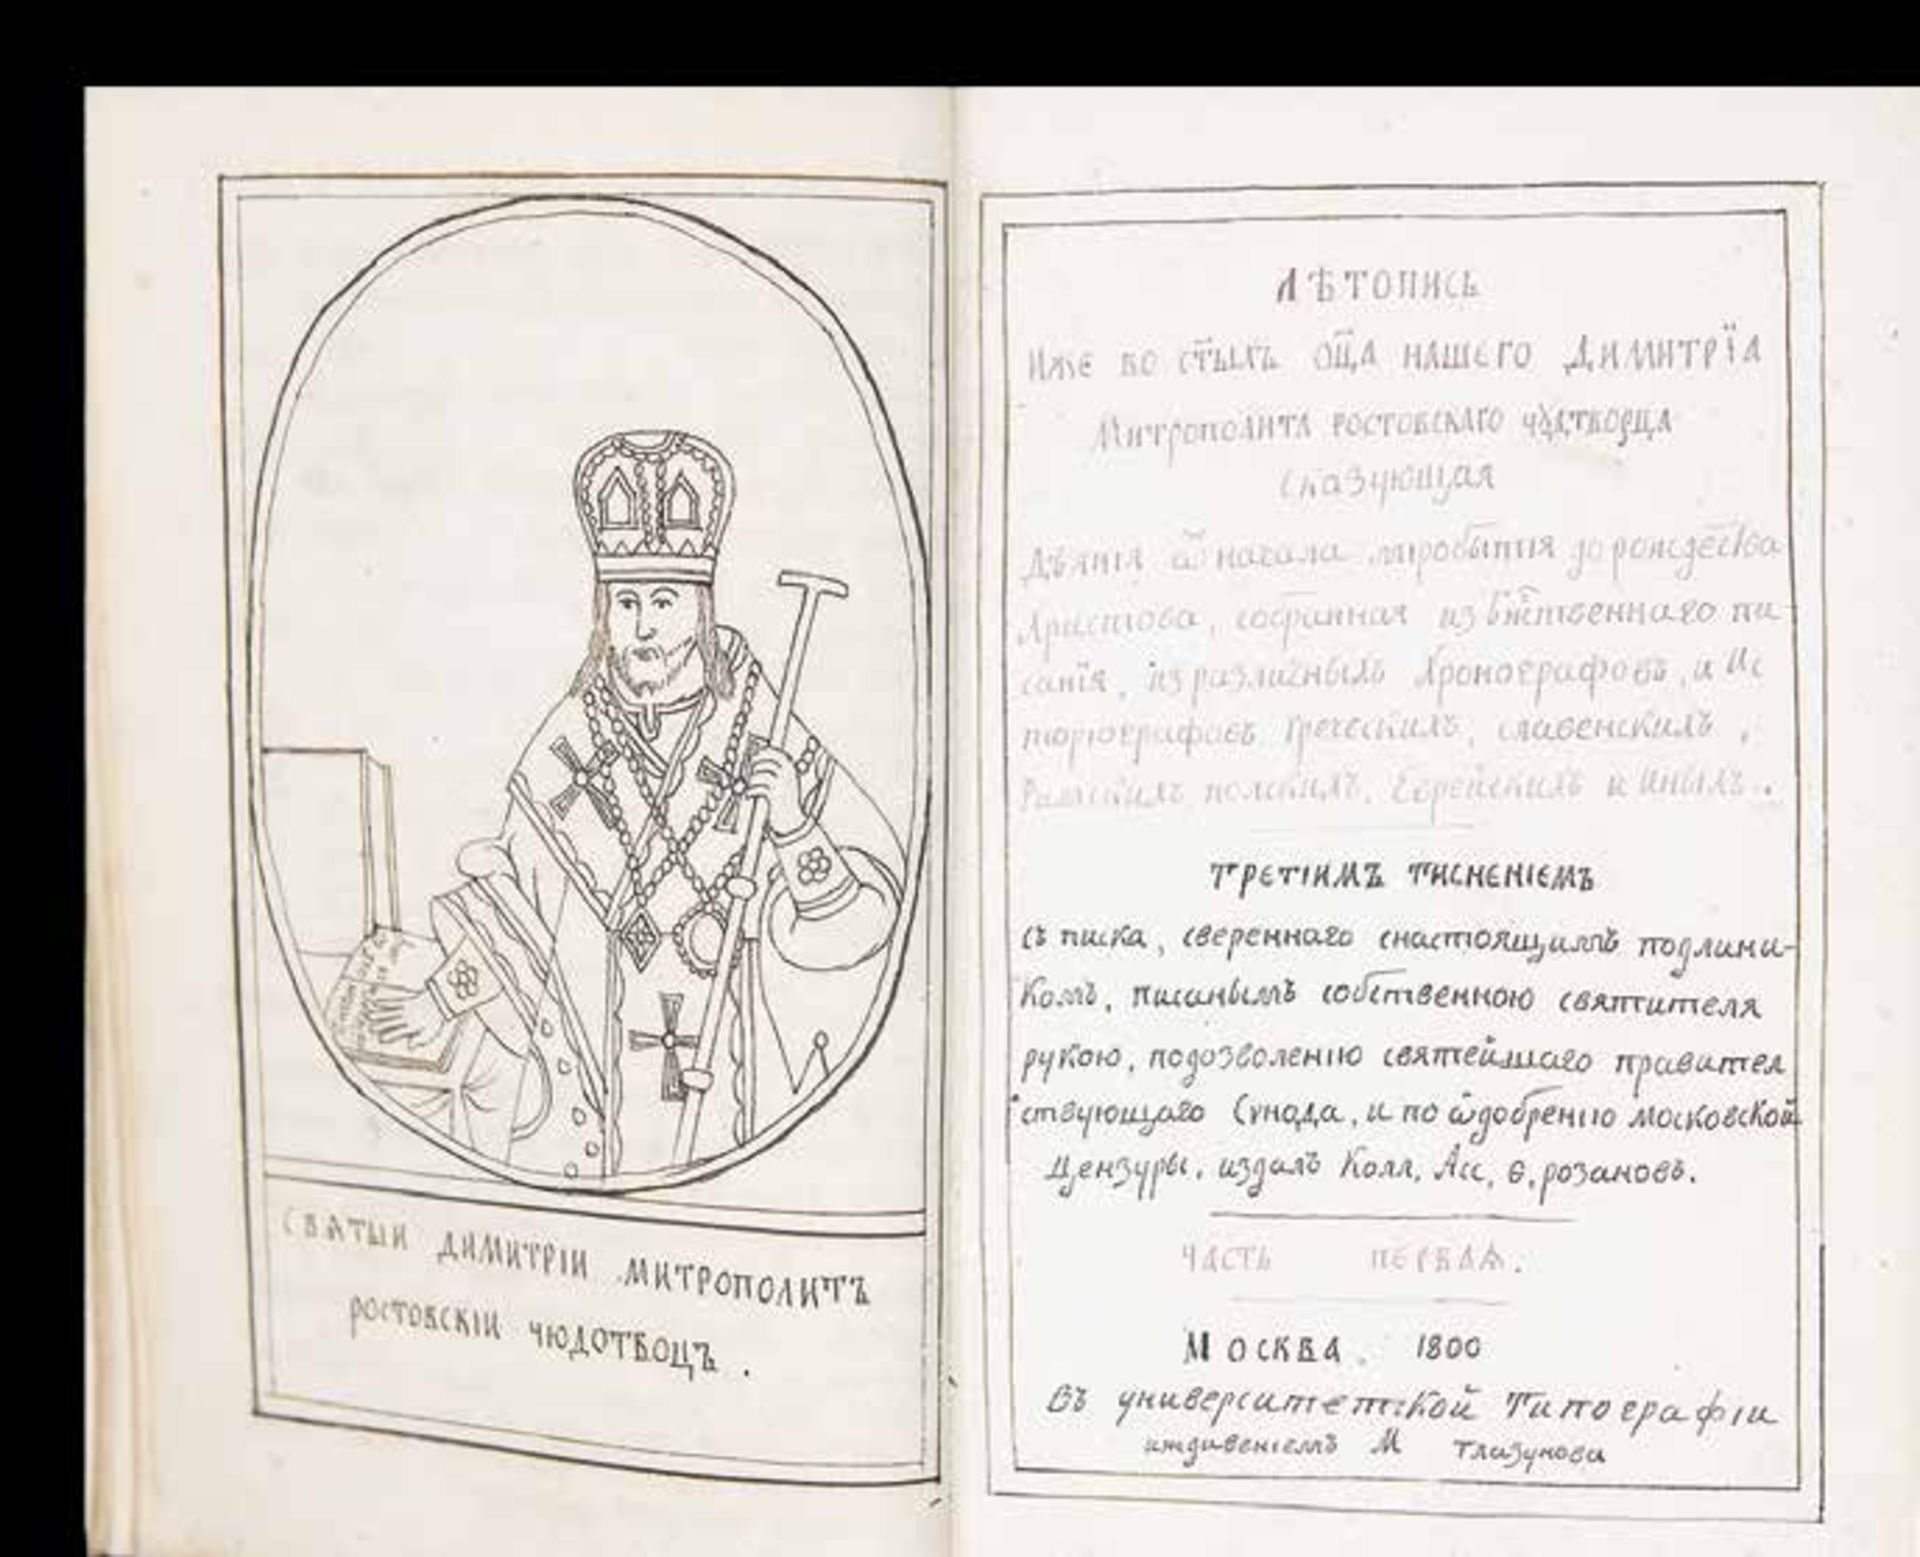 СВАТЫИ ДИМИТРІИ МИТРОПОЛИТЪ
РОСТОВСКІИ ЧЮДОТВОЦЪ .
ЛѢТОПИСЬ
ИЖЕ ВО СТ҃ЫХЪ ОЦ҃А НАШЕГО ДИМИТРЇА
Митрополита ростовскаго чꙋдатворца
сказующая
Дѣянїя ѿ начала миробытия до рождества
Христова, собранная из бж҃ественнаго пи-
санїя, из различныхъ Хронографовъ, и Ис
ториографовъ Греческихъ, славенскихъ,
Римскихъ полскихъ, Еврейскихъ и иныхъ.
третіимъ тиснениемъ
съ писка, свереннаго снастоящимъ подлини-
комъ, писанымъ собственною святителя
рукою, подозволению святейшаго правител
ствующаго Сѵнода, и по ѿдобрению московской
Цензуры. издалъ Колл. Асс. Ѳ. розановъ.
ЧАСТЬ ПЕРВАѦ.
МОСКВА. 1800
Въ университетской Типографіи
иждивениемъ М Глазунова